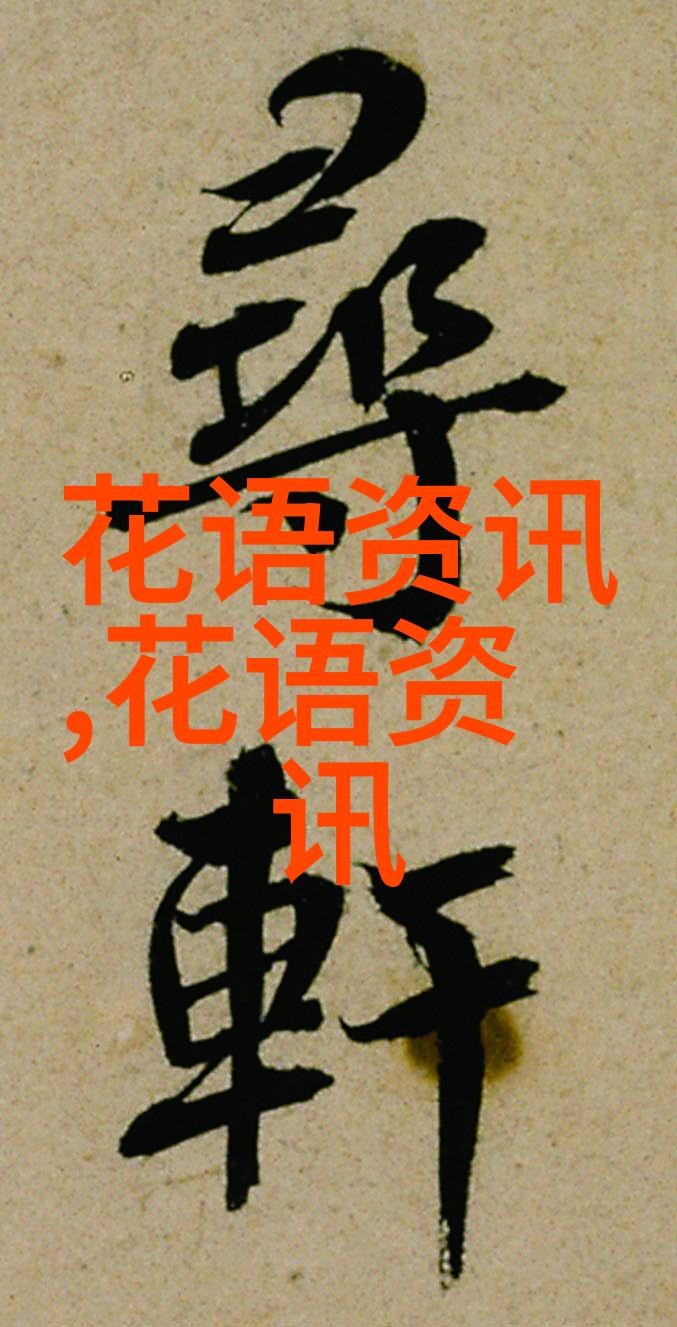 尋
軒
花语资讯
,花语资
讯